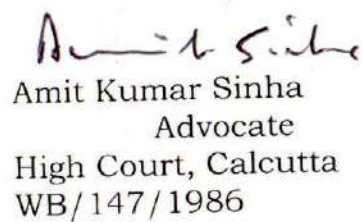 Amit Sinha
Amit Kumar Sinha
Advocate
High Court, Calcutta
WB/147/1986